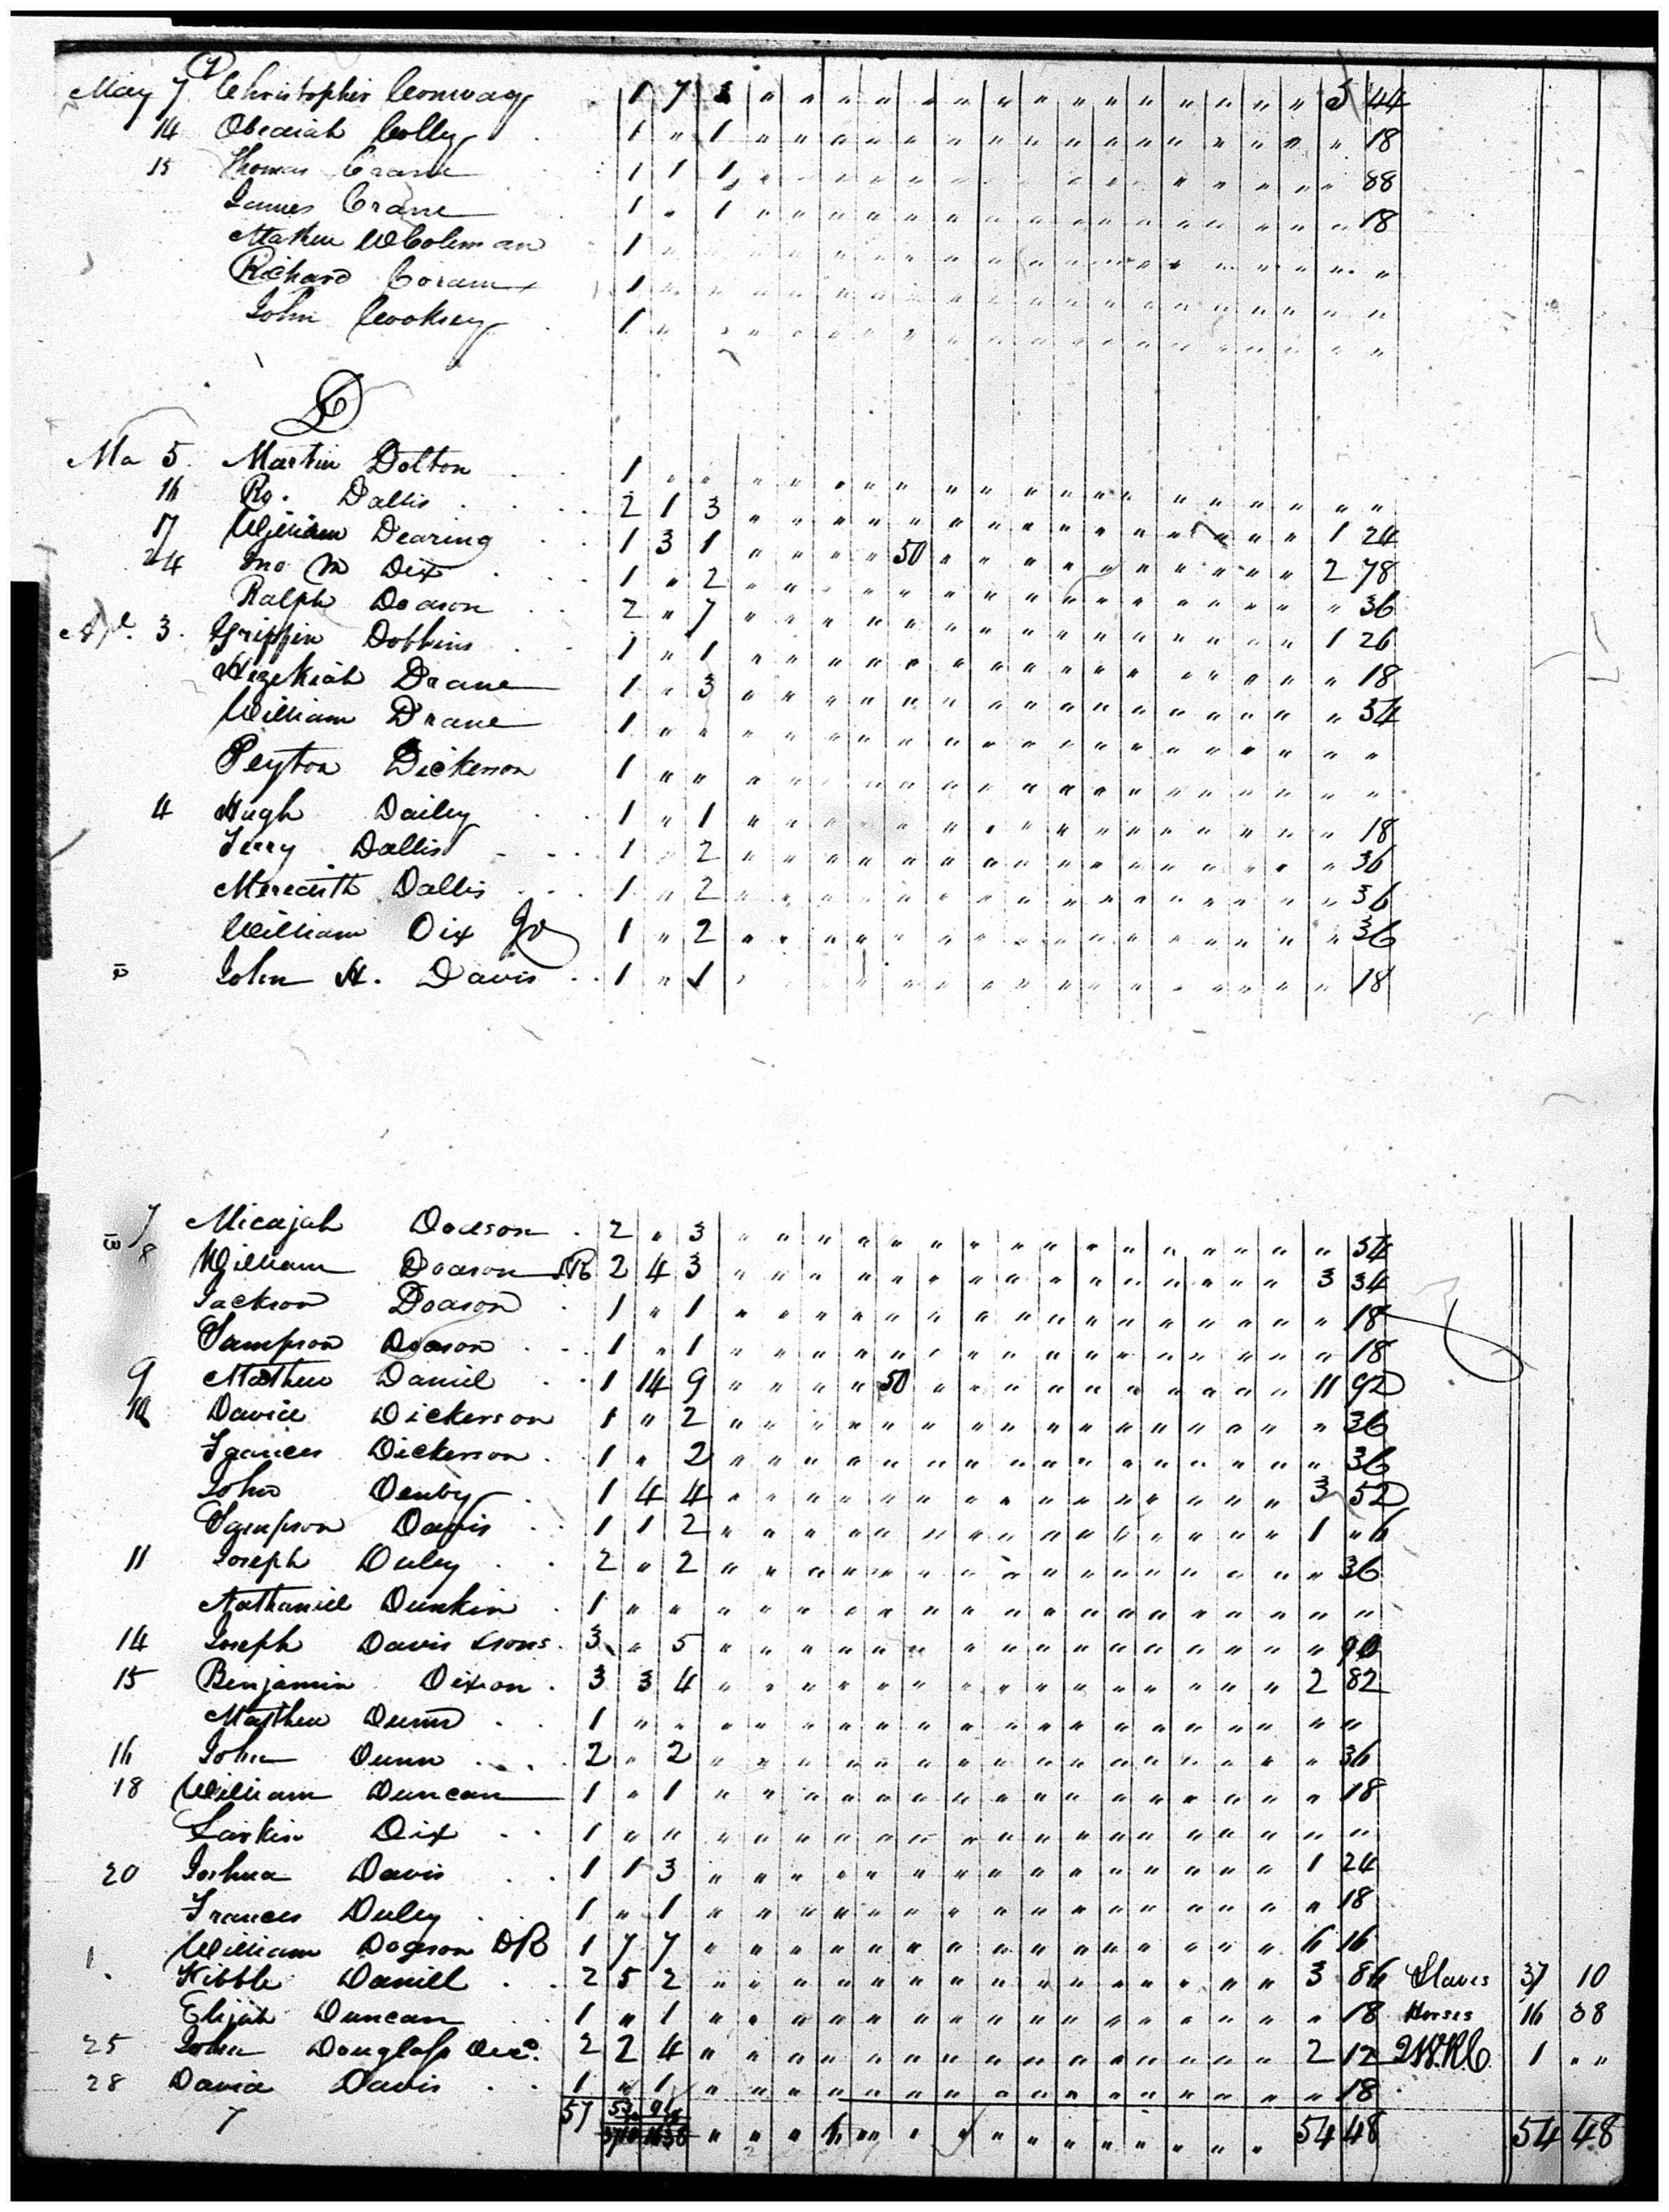 May 7 Christopher Conway 1 7 3 " " " " " " " " " " " " " " " 5 44
14 Obediah Colly 1 " 1 " " " " " " " " " " " " " " " " 18
15 Thomas Crane 1 1 1 " " " " " " " " " " " " " " " " 88
James Crane 1 " 1 " " " " " " " " " " " " " " " " 18
Mathew W Coleman 1 " " " " " " " " " " " " " " " " " "
Richard Coram 1 " " " " " " " " " " " " " " " " " "
John Cooksey 1 " " " " " " " " " " " " " " " " " "
D
Ma 5 Martin Dolton 1 " " " " " " " " " " " " " " " " " "
16 Ro. Dallis 2 1 3 " " " " " " " " " " " " " " " 1 24
17 William Dearing 1 3 1 " " " " 50 " " " " " " " " " " 2 78
24 Jno M Dix 1 " 2 " " " " " " " " " " " " " " " " 36
Ralph Dodson 2 " 7 " " " " " " " " " " " " " " " 1 26
Apl. 3 Griffin Dobbins 1 " 1 " " " " " " " " " " " " " " " " 18
Hezekiah Drane 1 " 3 " " " " " " " " " " " " " " " " 54
William Drane 1 " " " " " " " " " " " " " " " " " "
Peyton Dickerson 1 " " " " " " " " " " " " " " " " " "
4 Hugh Dailey 1 " 1 " " " " " " " " " " " " " " " " 18
Terry Dallis 1 " 2 " " " " " " " " " " " " " " " " 36
Meredith Dallis 1 " 2 " " " " " " " " " " " " " " " " 36
William Dix Jr 1 " 2 " " " " " " " " " " " " " " " " 36
12 John H. Davis 1 " 1 " " " " " " " " " " " " " " " " 18
7 Micajah Dodson 2 " 3 " " " " " " " " " " " " " " " " 54
13 8 William Dodson 2 4 3 " " " " " " " " " " " " " " " 3 34
Jackson Dodson 1 " 1 " " " " " " " " " " " " " " " " 18
Sampson Dodson 1 " 1 " " " " " " " " " " " " " " " " 18
9 Mathew Daniel 1 14 9 " " " " 50 " " " " " " " " " " 11 92
10 David Dickerson 1 " 2 " " " " " " " " " " " " " " " " 36
Frances Dickerson 1 " 2 " " " " " " " " " " " " " " " " 36
John Denby 1 4 4 " " " " " " " " " " " " " " " 3 52
Sampson Davis 1 1 2 " " " " " " " " " " " " " " " 1 " 6
11 Joseph Duley 2 " 2 " " " " " " " " " " " " " " " " 36
Nathaniel Dunkin 1 " " " " " " " " " " " " " " " " " "
14 Joseph Davis & sons 3 " 5 " " " " " " " " " " " " " " " " 90
15 Benjamin Dixon 3 3 4 " " " " " " " " " " " " " " " 2 82
Mathew Dunn 1 " " " " " " " " " " " " " " " " " "
16 John Dunn 2 " 2 " " " " " " " " " " " " " " " " 36
18 William Duncan 1 " 1 " " " " " " " " " " " " " " " " 18
Larkin Dix 1 " " " " " " " " " " " " " " " " " "
20 Joshua Davis 1 1 3 " " " " " " " " " " " " " " " 1 24
Frances Duley 1 " 1 " " " " " " " " " " " " " " " " 18
William Dodson DR 1 7 7 " " " " " " " " " " " " " " " 6 16
1 Kibble Daniel 2 5 2 " " " " " " " " " " " " " " " 3 86 Slaves 37 10
Elijah Duncan 1 " 1 " " " " " " " " " " " " " " " " 18 Horses 16 38
25 John Douglass Decd. 2 2 4 " " " " " " " " " " " " " " " 2 12 2 W.R.C. 1 " "
28 David Davis 1 " 1 " " " " " " " " " " " " " " " " 18
7 57 53 91 " " " " " " " " " " " " " " 54 48 54 48
37 10 16 38